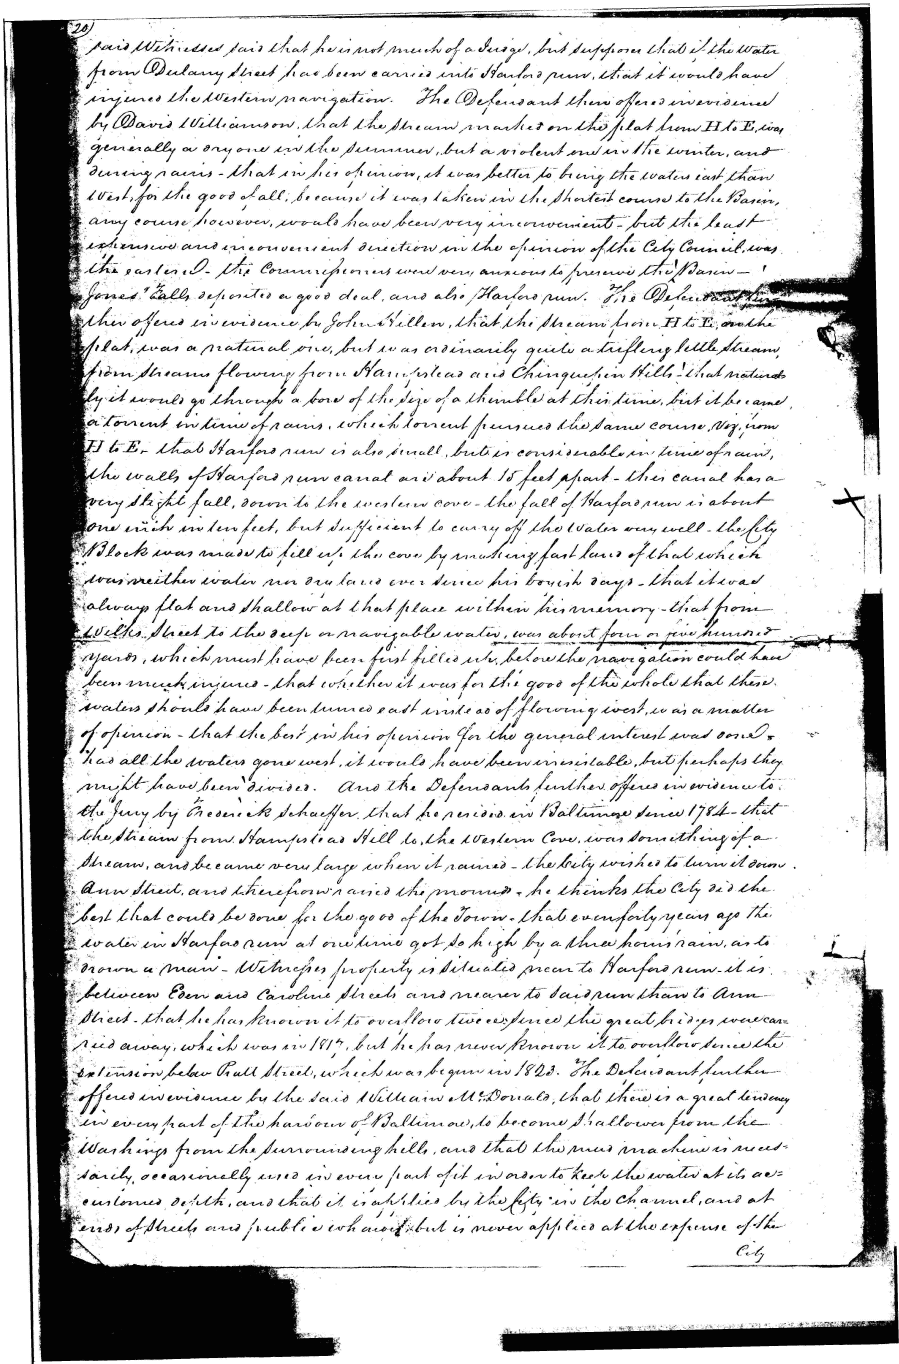 20)
said Witnesses said that he is not much of a Judge, but supposes that if the water
from Dulany Street had been carried into Harford run, that it would have
injured the Western navigation. The Defendant then offered in evidence
by David Williamson, that the stream marked on the plat from H to E, was
generally a dry one in the summer, but a violent one in the winter, and
during rains - that in his opinion, it was better to bring the waters east than
West, for the good of all, because it was taken in the shortest course to the Basin,
any course however, would have been very inconvenient - but the least
expensive and inconvenient direction in the opinion of the City Council, was
the eastern - the Commissioners were very anxious to preserve the Basin -
Jones' Falls deposited a good deal, and also Harford run. The Defendant fur
ther offered in evidence by John Hillen, that the stream from H to E, on the
plat, was a natural one, but was ordinarily quite a trifling little stream,
from streams flowing from Hampstead and Chinquepin Hills - that natural
ly it would go through a bore of the size of a thimble at this time, but it became
a torrent in time of rains, which torrent pursued the same course, viz, from
H to E, - that Harford run is also small, but is considerable in time of rain,
the walls of Harford run canal are about 15 feet apart - this canal has a
very slight fall, down to the western cove - the fall of Harford run is about
one inch in ten feet, but sufficient to carry off the water very well - the City
Block was made to fill up the cove by making fast land of that which
was neither water nor dry land ever since his boyish days - that it was
always flat and shallow at that place within his memory - that from
Wilks Street to the deep or navigable water, was about four or five hundred
yards, which must have been first filled up, before the navigation could have
been much injured - that whether it was for the good of the whole that these
waters should have been turned east instead of flowing west, was a matter
of opinion - that the best in his opinion for the general interest was done -
had all the waters gone west, it would have been irresistable, but perhaps they
might have been divided. And the Defendants further offered in evidence to
the Jury by Frederick Schaeffer, that he resided in Baltimore since 1784 - that
the stream from Hampstead Hill to the Western Cove, was something of a
stream, and became very large when it rained - the City wished to turn it down
Ann Street, and therefrom raised the mound - he thinks the City did the
best that could be done for the good of the Town - that even forty years ago the
water in Harford run at one time got so high by a three hours' rain, as to
drown a man - Witnesses property is situated near to Harford run - it is
between Eden and Caroline Streets and nearer to said run than to Ann
Street - that he has known it to overflow twice since the great bridges were car=
ried away, which was in 1817, but he has never known it to overflow since the
extension below Pratt Street, which was begun in 1823. The Defendant further
offered in evidence by the said William McDonald, that there is a great tendency
in every part of the harbour of Baltimore, to become shallower from the
Washings from the surrounding hills, and that the mud machine is neces=
sarily, occasionally used in every part of it in order to keep the water at its ac=
customed depth, and that it is applied by the City in the channel, and at
ends of Streets and public wharves, but is never applied at the expense of the
City